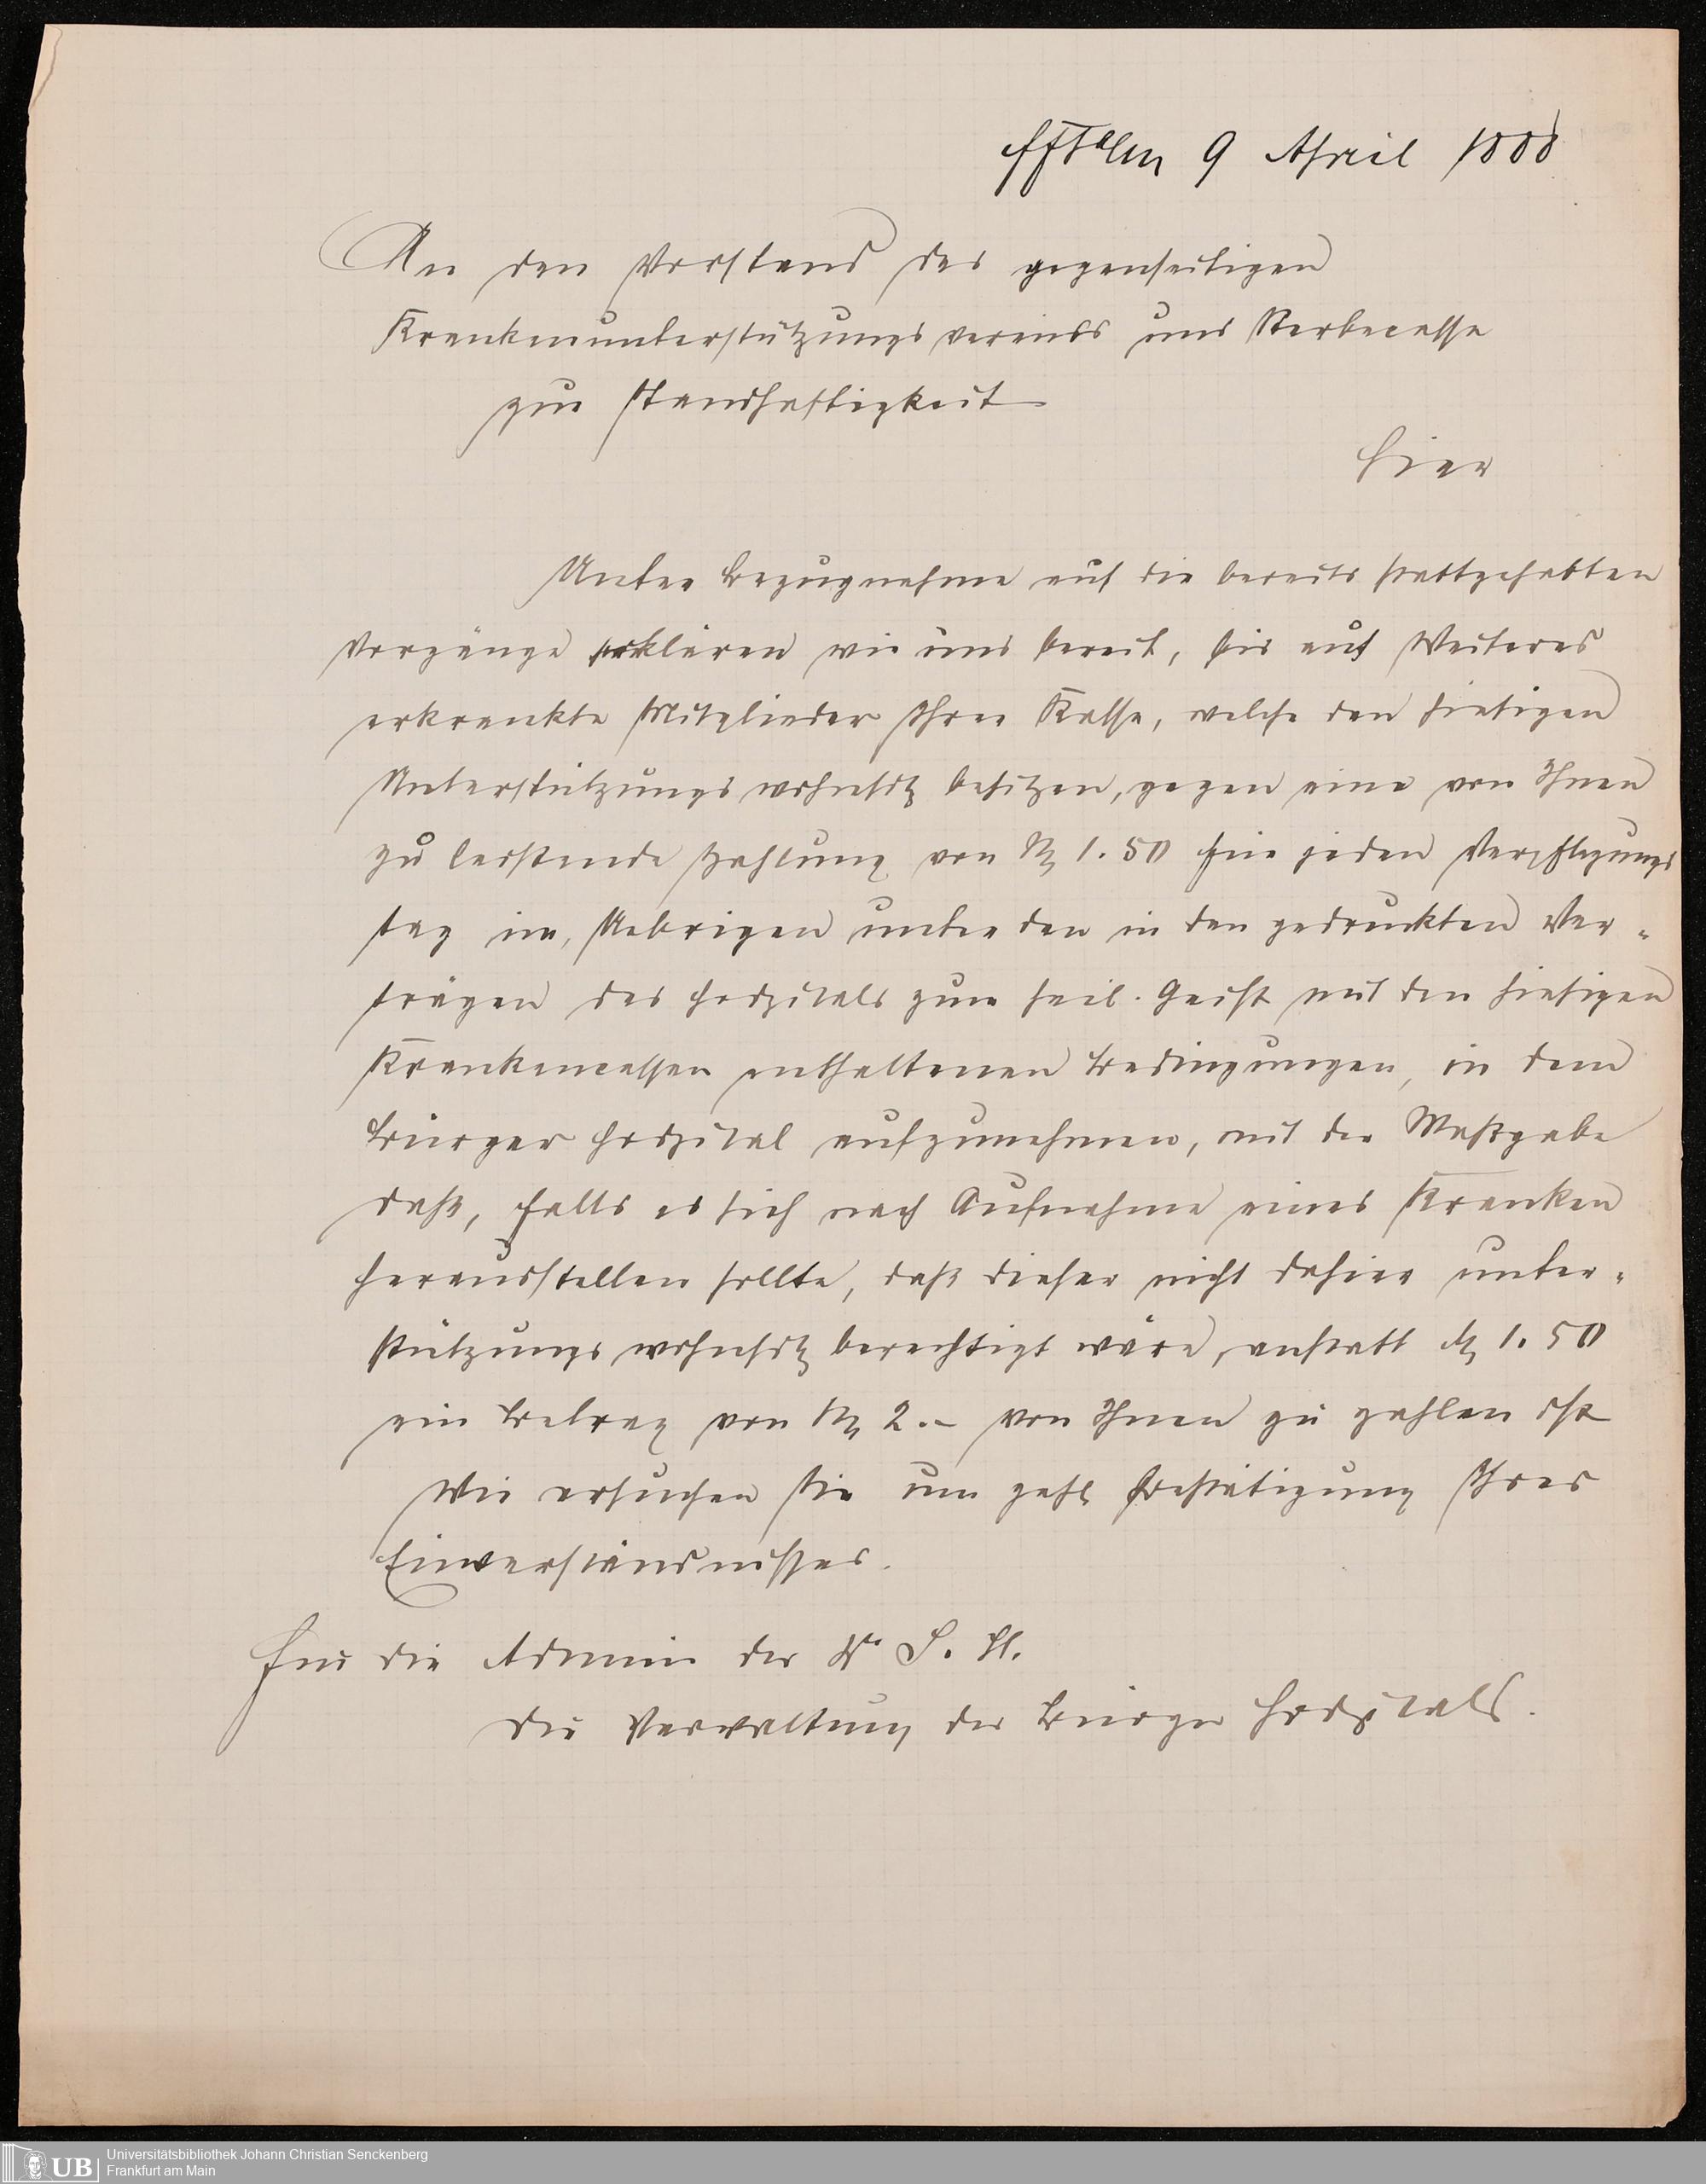 Ffta/m 9 April 1888
An den Vorstand des gegenseitigen
Krankenunterstützungsvereins und Sterbecasse
zur Standhaftigkeit
hier
Unter Bezugnahme auf die bereits stattgehabten
Vorgänge erklären wir uns bereit, bis auf Weiteres
erkrankte Mitglieder Ihrer Kasse, welche den hiesigen
Unterstützungswohnsitz besitzen, gegen eine von Ihnen
zu leistende Zahlung von M 1.50 für jeden Verpflegungs
tag im Uebrigen unter den in den gedruckten Ver-
trägen des Hospitals zum heil. Geist mit den hiesigen
Krankencassen enthaltenen Bedingungen, in dem
Bürger Hospital aufzunehmen, mit der Maßgabe
daß, falls es sich nach Aufnahme eines Kranken
herausstellen sollte, daß dieser nicht dahier unter-
stützungswohnsitz berechtigt wäre, anstatt M 1.50
ein Betrag von M 2.- von Ihnen zu zahlen ist
Wir ersuchen Sie um gefl Bestätigung Ihres
Einverständnisses.
Für die Admin der Dr S. St.
Die Verwaltung des Bürger Hospitals.
Universitätsbibliothek Johann Christian Senckenberg
UB Frankfurt am Main